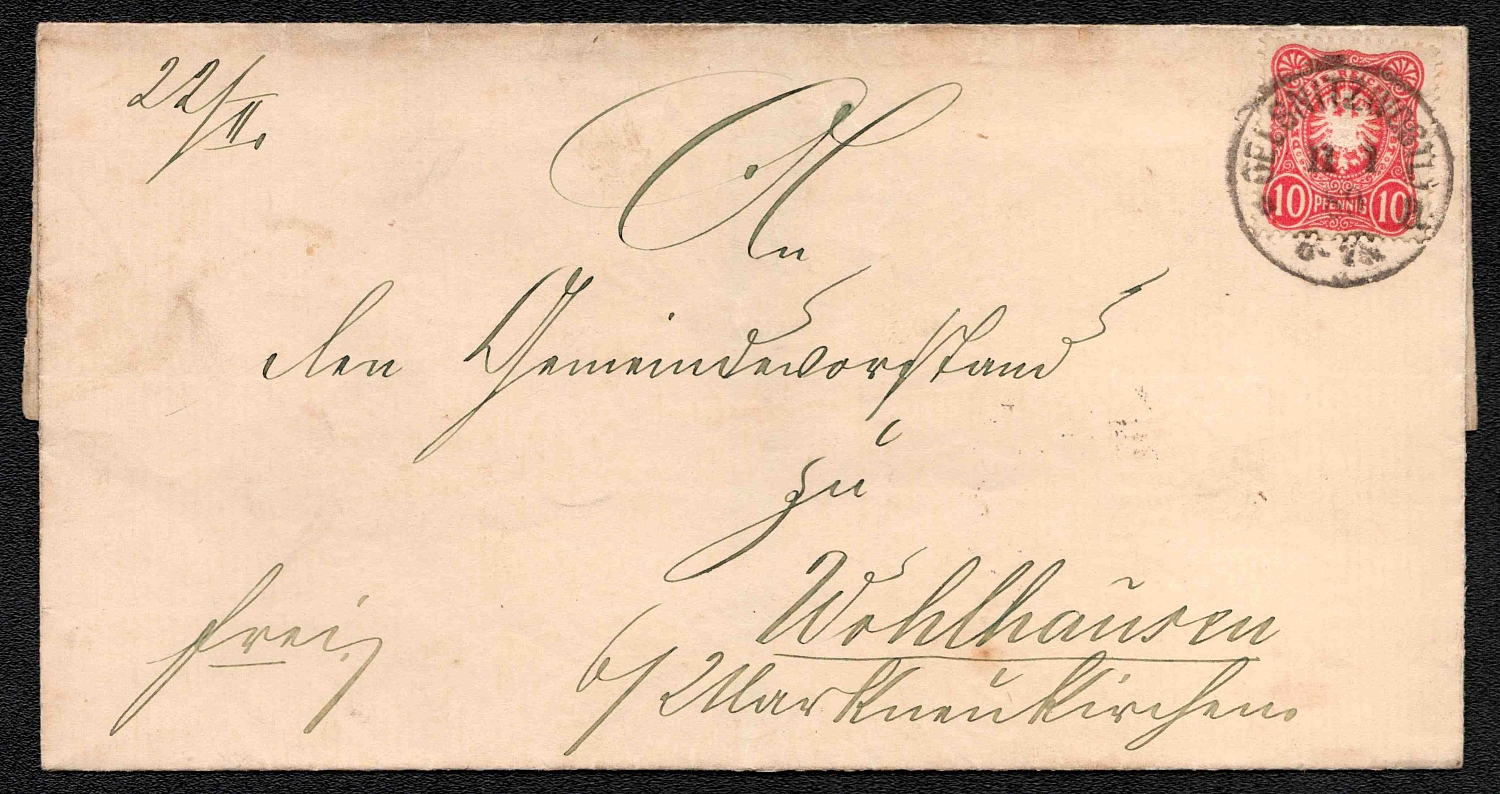 22/II.
An
den Gemeindevorstand
zu
Wohlhausen
b/Markneukirchen.
frei
10 PFENNIG 10
OELSNITZ